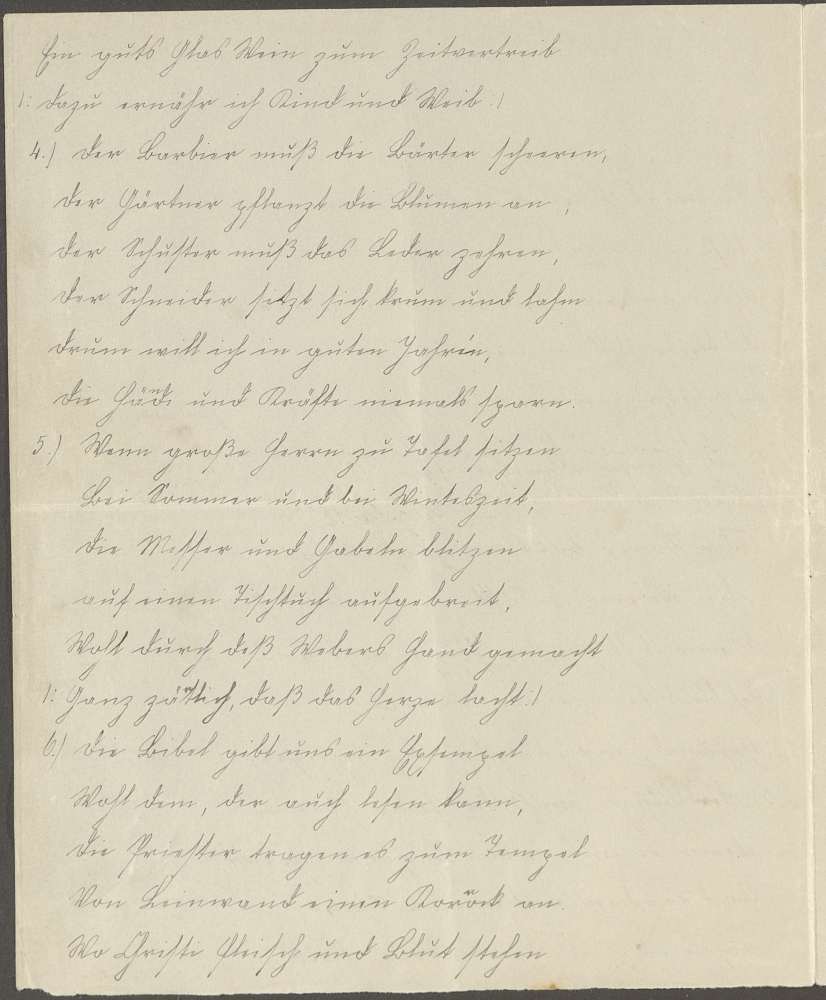 Ein guts Glas Wein zum Zeitvertreib
|: dazu ernähr ich Kind und Weib :|
4.) Der Barbier muß die Bärter scheeren,
Der Gärtner pflanzt die Blumen an,
der Schuster muß das Leder zehren,
Der Schneider sitzt sich krum und lahm
drum will ich in guten Jahrn,
die Händ und Kräfte niemals sparn.
5.) Wenn große Herrn zu Tafel sitzen
Bei Sommer und bei Winteszeit,
die Messer und Gabeln blitzen
auf einen Tischtuch aufgebreit,
Wohl durch deß Webers Hand gemacht
|: Ganz zärtlich, daß das Herze lacht :|
6.) die Bibel gibt uns ein Exsempel
Wohl dem, der auch lesen kann,
die Priester tragen es zum Tempel
Von Leinwand einen an.
Wo Christi Fleisch und Blut stehen